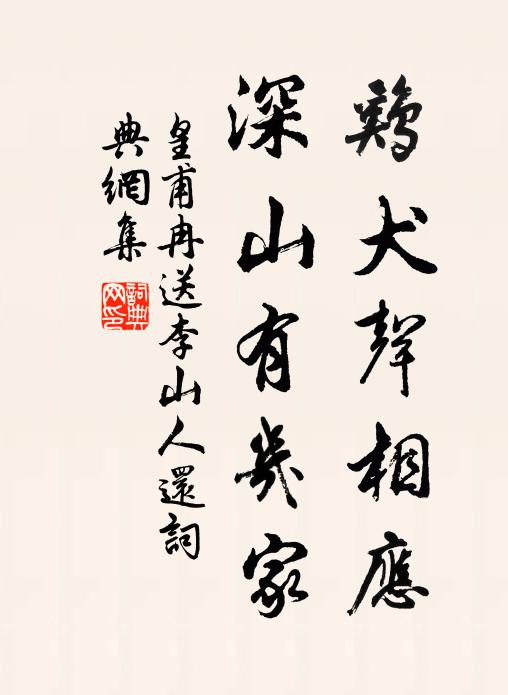 鷄犬聲相應
深山有幾家
皇甫冉送李山人還詞
典網集
詞典網印